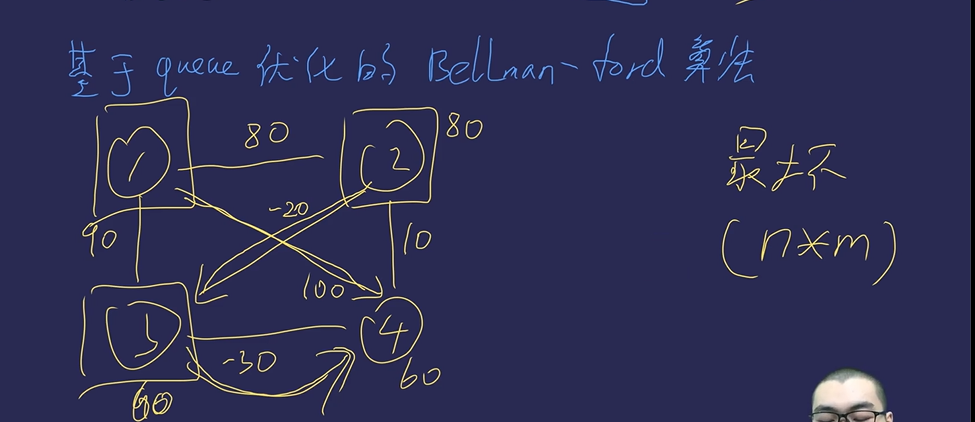 基于 queue 优化的 Bellman-ford 算法
80
1
2
80
-20
90
10
100
3
4
-30
60
最坏
(n*m)